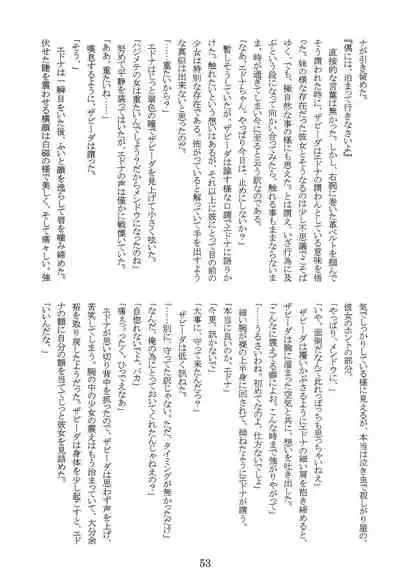 ナが引き留めた。
『偶には、泊まって行きなさいよ』
直接的な言葉は無かった。しかし、右腕に巻いた革ベルトを掴んで
そう謂われた時に、ザビーダはエドナの謂わんとしている意味を悟
った。妹の様な存在だった彼女とそうなるのは少し不思議でこそば
ゆく、でも、極自然な事の様にも思えた。とは謂え、いざ行為に及
ぶという段になって向かい合ってみたら、触れる事もままならないま
ま、時が過ぎてしまい今に至ると云う訳なのである。
「なぁ、エドナちゃん。やっぱり今日は、止めにしないか？」
暫しそうしていたが、ザビーダは諭す様な口調でエドナに語りか
けた。触れたいという想いはあるが、それ以上に彼にとって目の前の
少女は特別な存在である。怖がっていると解っていて手を出すよう
な真似は出来ないと思ったのだ。
「……重たいから？」
エドナはじっと翠色の瞳でザビーダを見上げて小さく呟いた。
「ハジメテの女は重たいんでしょう？だからメンドウになったのね」
努めて平静を装ってはいたが、エドナの声は僅かに戦慄いていた。
「あぁ、重たいね……」
嘆息するように、ザビーダは謂った。
「そう。」
エドナは一瞬目をいた後、ふいと顔を逸らして唇を噛み締めた。
伏せた睫を震わせる横顔は白磁の様で美しく、そして痛々しい。強
気でしっかりしている様に見えるが、本当は泣き虫で寂しがり屋の、
彼女のホントの部分。
「やっぱり、メンドウに、」
「いや、面倒だなんて此れっぽっちも思っちゃいねえ」
ザビーダは覆いかぶさるようにエドナの細い肩を抱き締めると、
ザビーダは胸に溜まった空気と共に、想いを吐き出した。
「こんなに震えてる癖によお。こんな時まで強がりやがって」
「……うるさいわね。初めてなのよ、仕方ないでしょ」
細い腕が裸の上半身に回されて、拗ねたようにエドナが謂う。
「本当に良いのか、エドナ」
「今更、訊かないで」
「大事に、守って来たんだろう？」
ザビーダは低く訊ねた。
「……別に、守ってた訳じゃない。ただ、タイミングが無かっただけ」
「なんだ、俺の為にとっておいてくれたんじゃねえの？」
「自惚れないでよ、バカ」
「痛えっ。ったく、ひってえなあ」
エドナが思い切り背中を抓ったので、ザビーダは思わず声を上げ、
苦笑してしまう。腕の中の少女の震えはもう治まっていて、大分余
裕を取り戻したようだった。ザビーダは身体を少し起こすと、エド
ナの額に自分の額を当ててじっと彼女を見詰めた。
「いいんだな。」
53